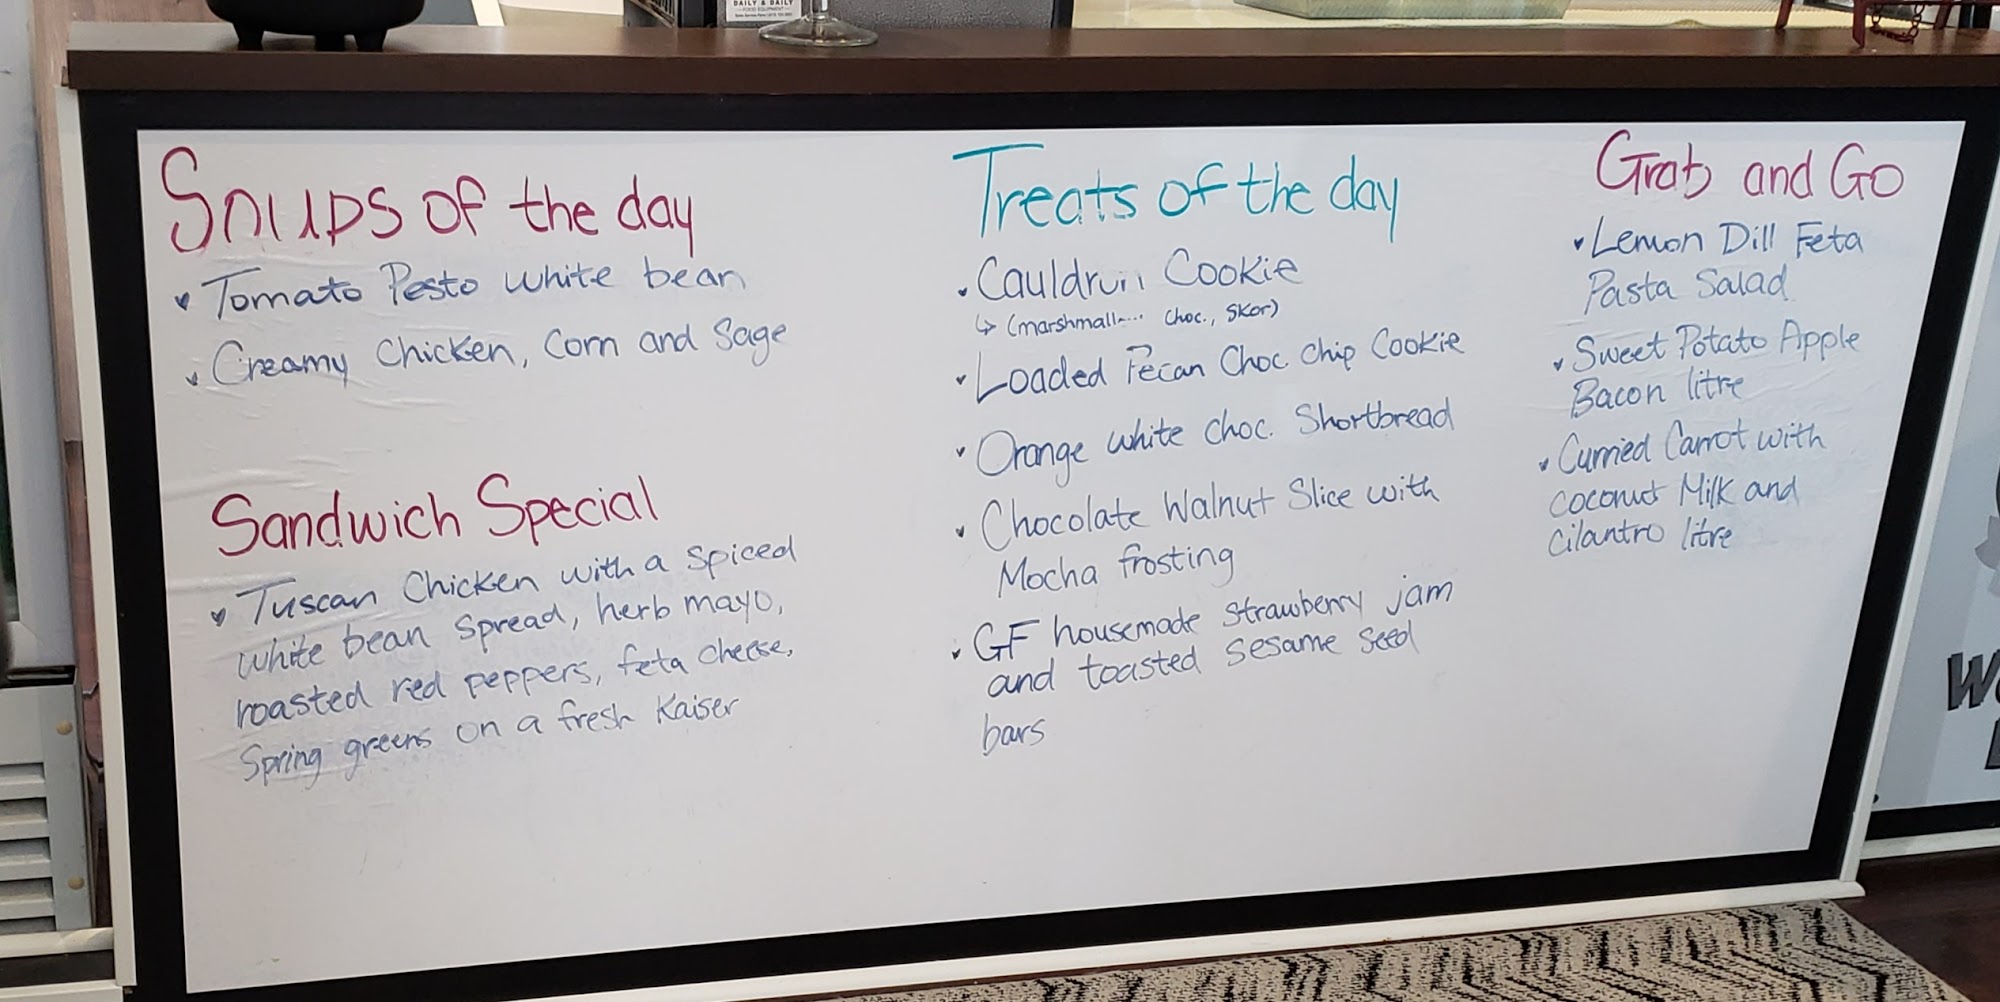 DAILY & DAILY
FOOD EQUIPMENT
Soups of the day
Tomato Pesto white bean
Creamy Chicken, Corn and Sage
Sandwich Special
Tuscan Chicken with a spiced
white bean spread, herb mayo,
roasted red peppers, feta cheese,
Spring greens on a fresh Kaiser
Treats of the day
Cauldron Cookie
↳ (marshmall... choc., Skor)
Loaded Pecan Choc Chip Cookie
Orange white choc. Shortbread
Chocolate Walnut Slice with
Mocha frosting
GF housemade strawberry jam
and toasted sesame seed
bars
Grab and Go
Lemon Dill Feta
Pasta Salad
Sweet Potato Apple
Bacon litre
Curried Carrot with
coconut Milk and
cilantro litre